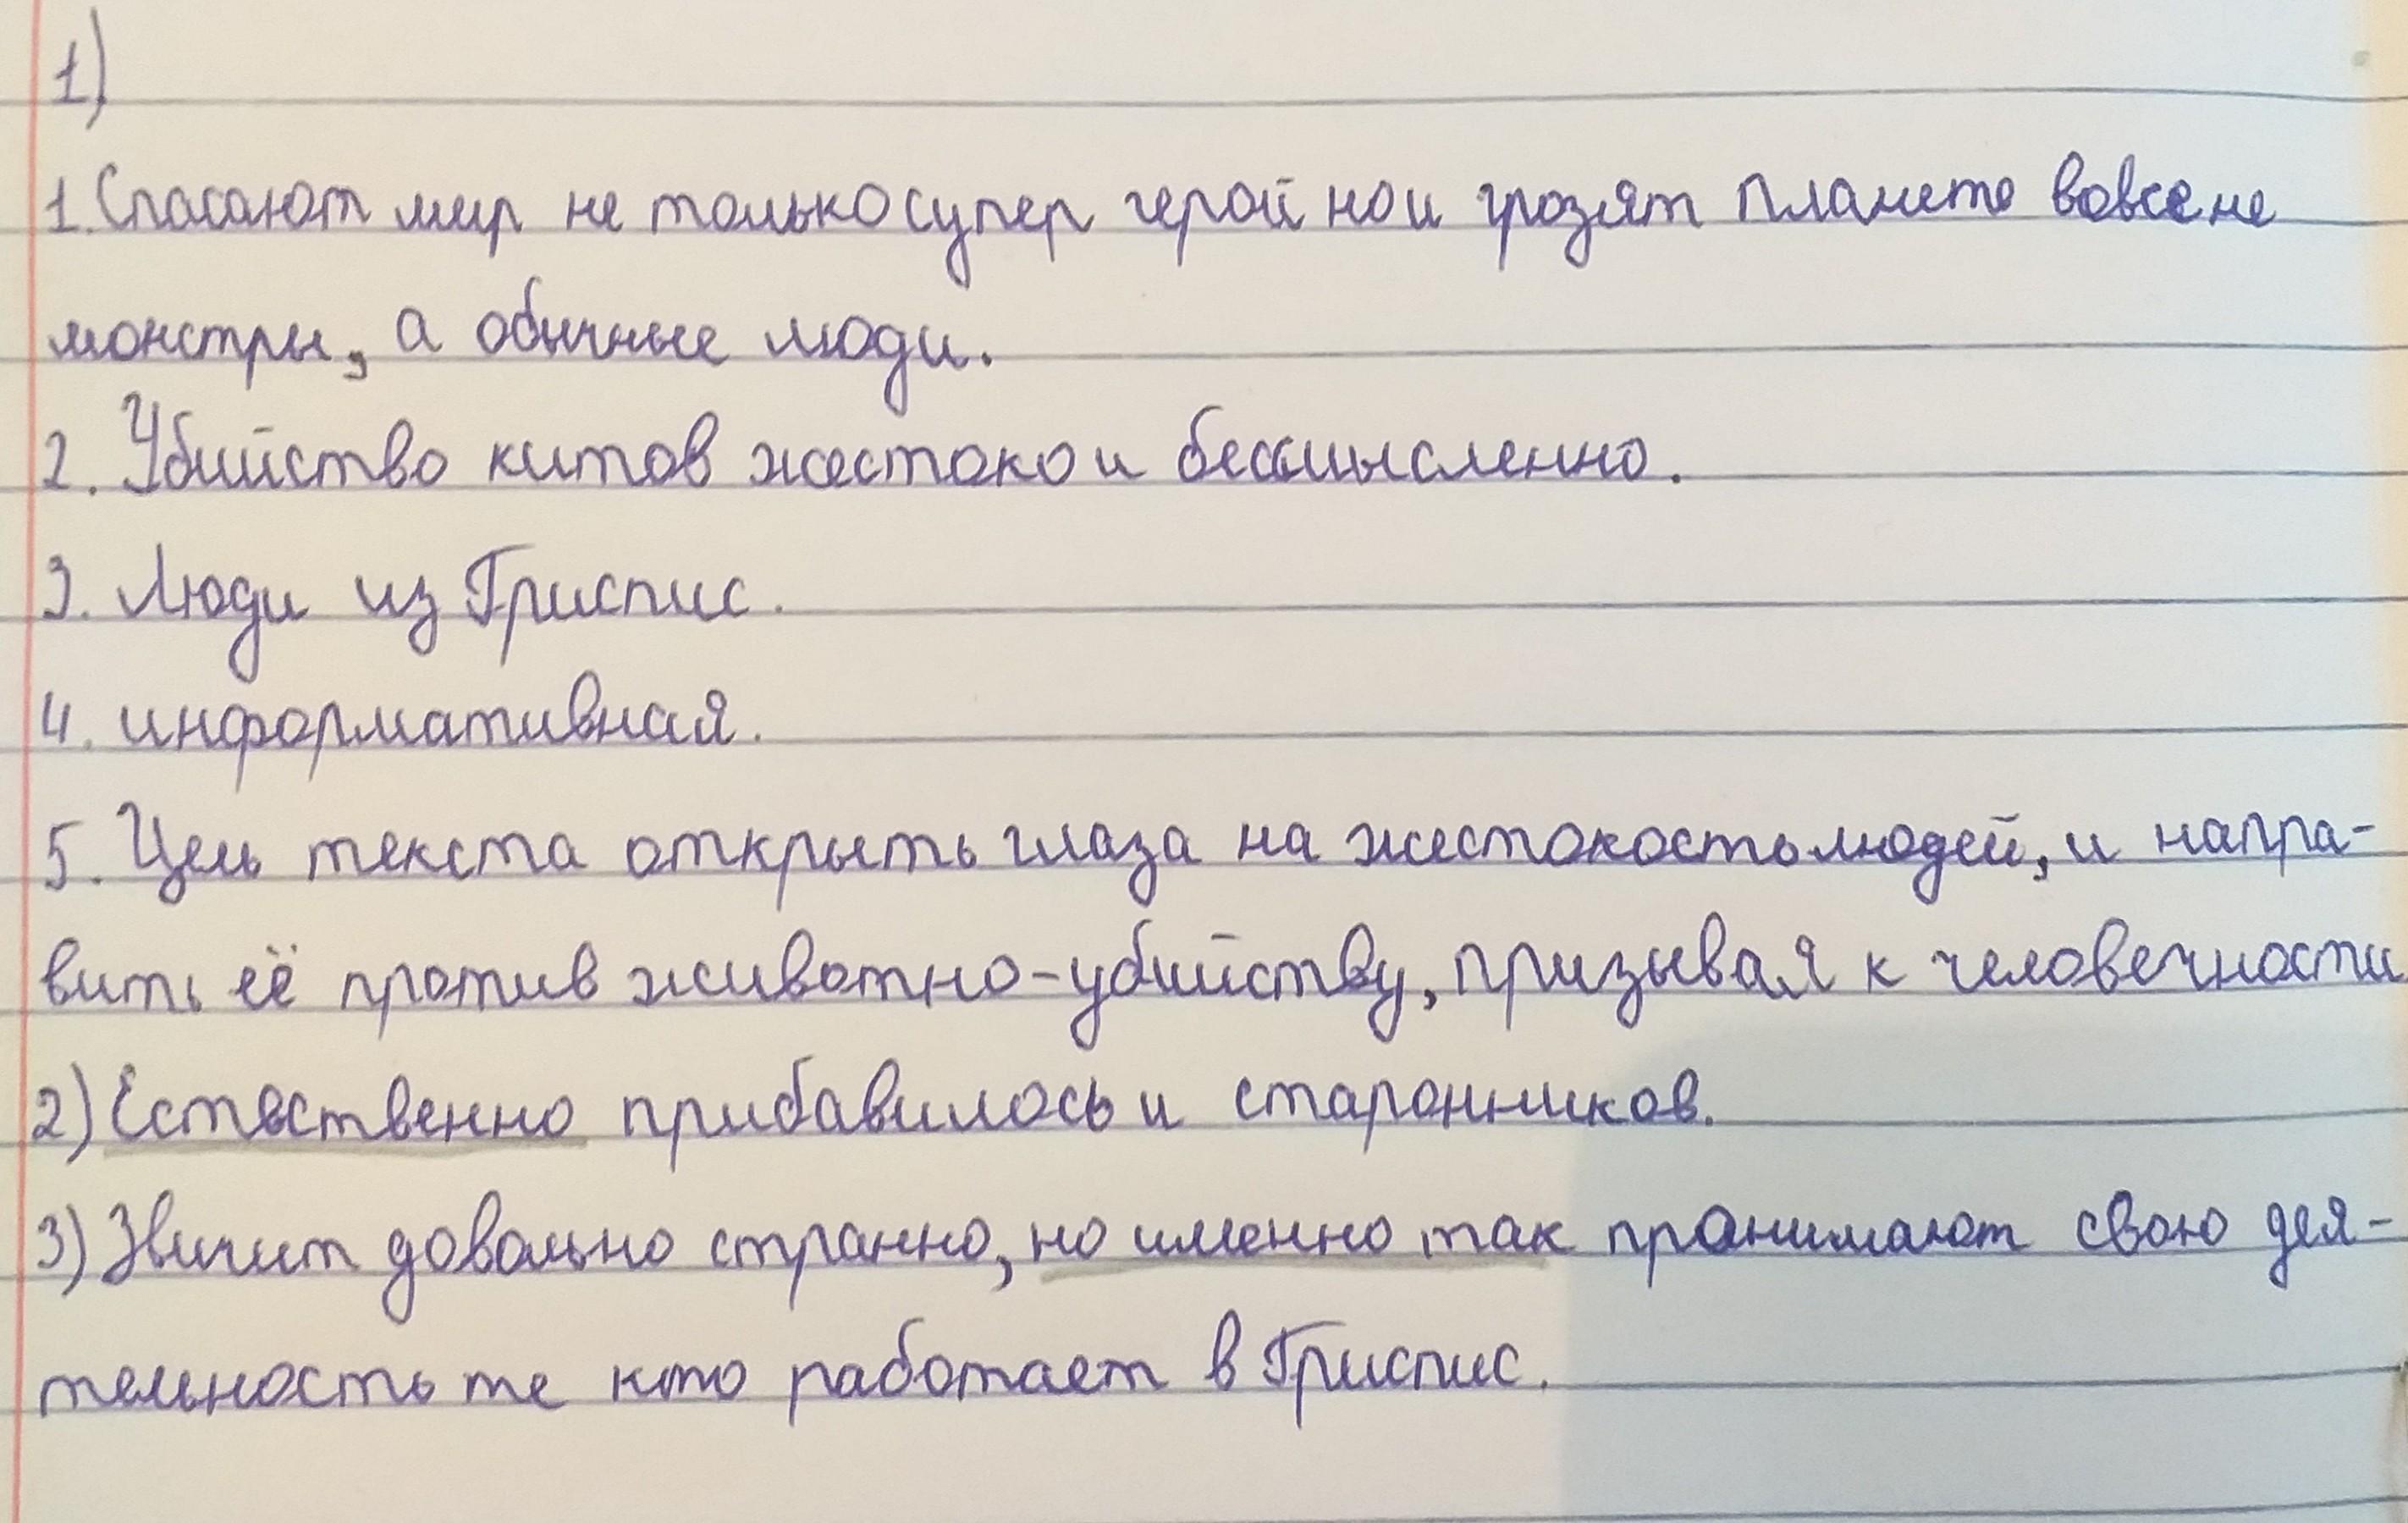 1)
1. Спасают мир не только супер герой но и грозят планете вовсе не
монстры, а обычные люди.
2. Убийство китов жестоко и бессмысленно.
3. Люди из Гриспис.
4. информативная.
5. Цель текста открыть глаза на жестокость людей, и напра-
вить её против животно-убийству, призывая к человечности
2) Естественно прибавилось и старонников.
3) Звичит довольно странно, но именно так пронимают свою дея-
тельность те кто работает в Гриспис.